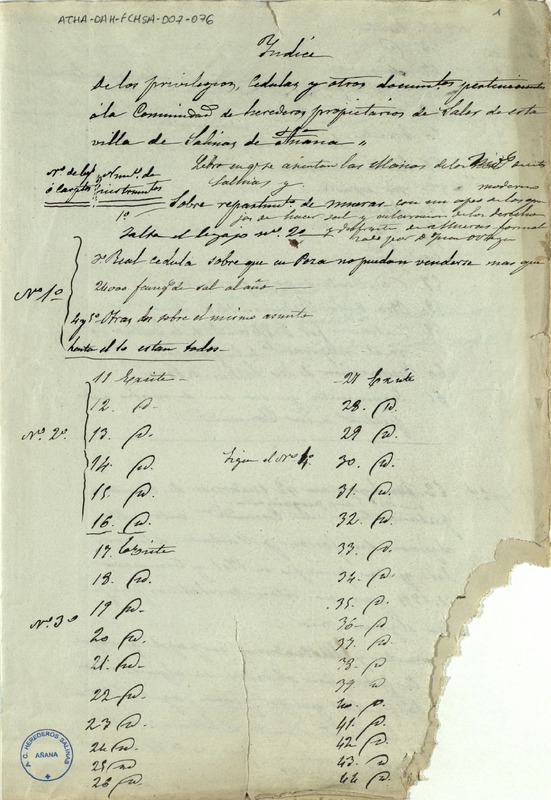 ATHA-DAH-FCHSA-D07-076
1
Indice
De los privilegios, Cedulas y otros documentos pertenecientes
á la Comunidad de herederos propietarios de Sales de esta
villa de Salinas de Añana
Nº de leg
Libro en qe se asientan las
Salinas y
moderno
Sobre repartimto. de mueras con un apeo de los
1º
de hacer sal y de los derechos
Salta el legajo nº. 2º
y de Mueras
por D. Juan
Nº 1º
3º Real Cedula sobre que en Poza no puedan venderse mas que
24000 faneg.s de sal al año
4 y 5º Otras dos sobre el mismo asunto
hasta el 10 estan todos
11 Existe
12. id.
13. id.
Nº. 2º.
14. id.
15. id.
16. id.
17. Existe
18. id.
19 id.
Nº. 3º
20 id.
21. id.
22 id.
23 id.
24 id.
25 id
26 id.
Sigue el Nº 4.
27 Existe
28. id.
29 id.
30. id.
31. id.
32. id.
33. id.
34. id.
35. id.
36 id.
37. id.
38. id.
39 id
40. id.
41. id.
42 id.
43. id.
44 id.
A. C. HEREDEROS SALINAS
AÑANA